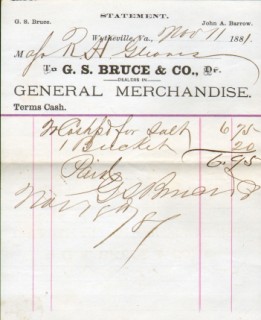 STATEMENT.
G. S. Bruce. John A. Barrow.
Wytheville, Va., Nov 11 1881.
R H
To G. S. BRUCE & CO., Dr.
DEALERS IN
GENERAL MERCHANDISE.
Terms Cash.
for Salt 6 75
1 Bucket 20
6.95
Paid
G S Bruce
Nov 18